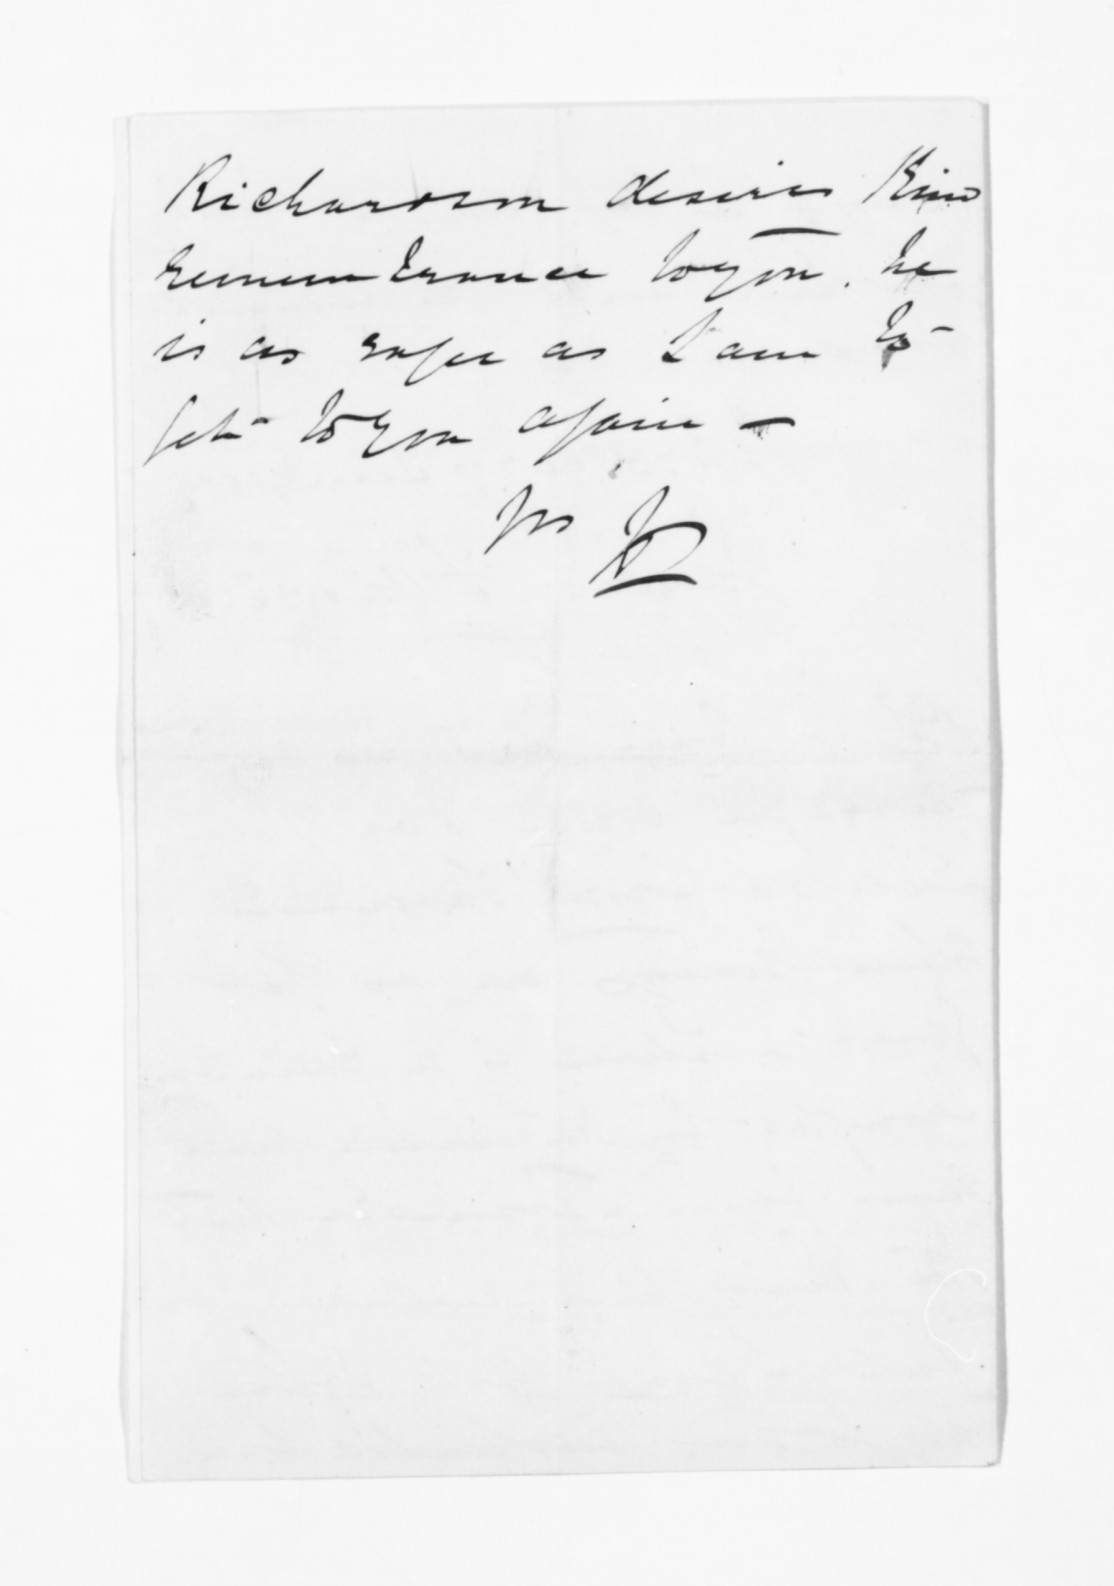 Richardson desires Kind
remembrance to you. he
is as safe as I am to
get to you again —
Yrs